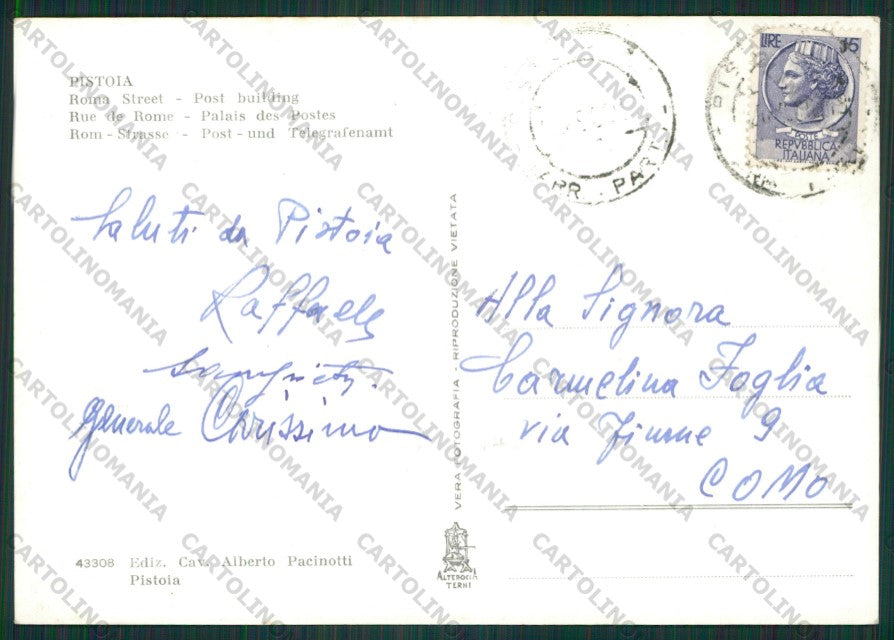 PISTOIA
Roma Street - Post building
Rue de Rome - Palais des Postes
Rom - Strasse - Post - und Telegrafenamt
LIRE 15
POSTE
REPVBBLICA
ITALIANA
PARTI
Saluti da Pistoia
Raffaele
generale Carissimo
VERA FOTOGRAFIA - RIPRODUZIONE VIETATA
Alla Signora
Carmelina Foglia
via Fiume 9
COMO
43308 Ediz. Cav. Alberto Pacinotti
Pistoia
ALTEROCCA
TERNI
CARTOLINOMANIA